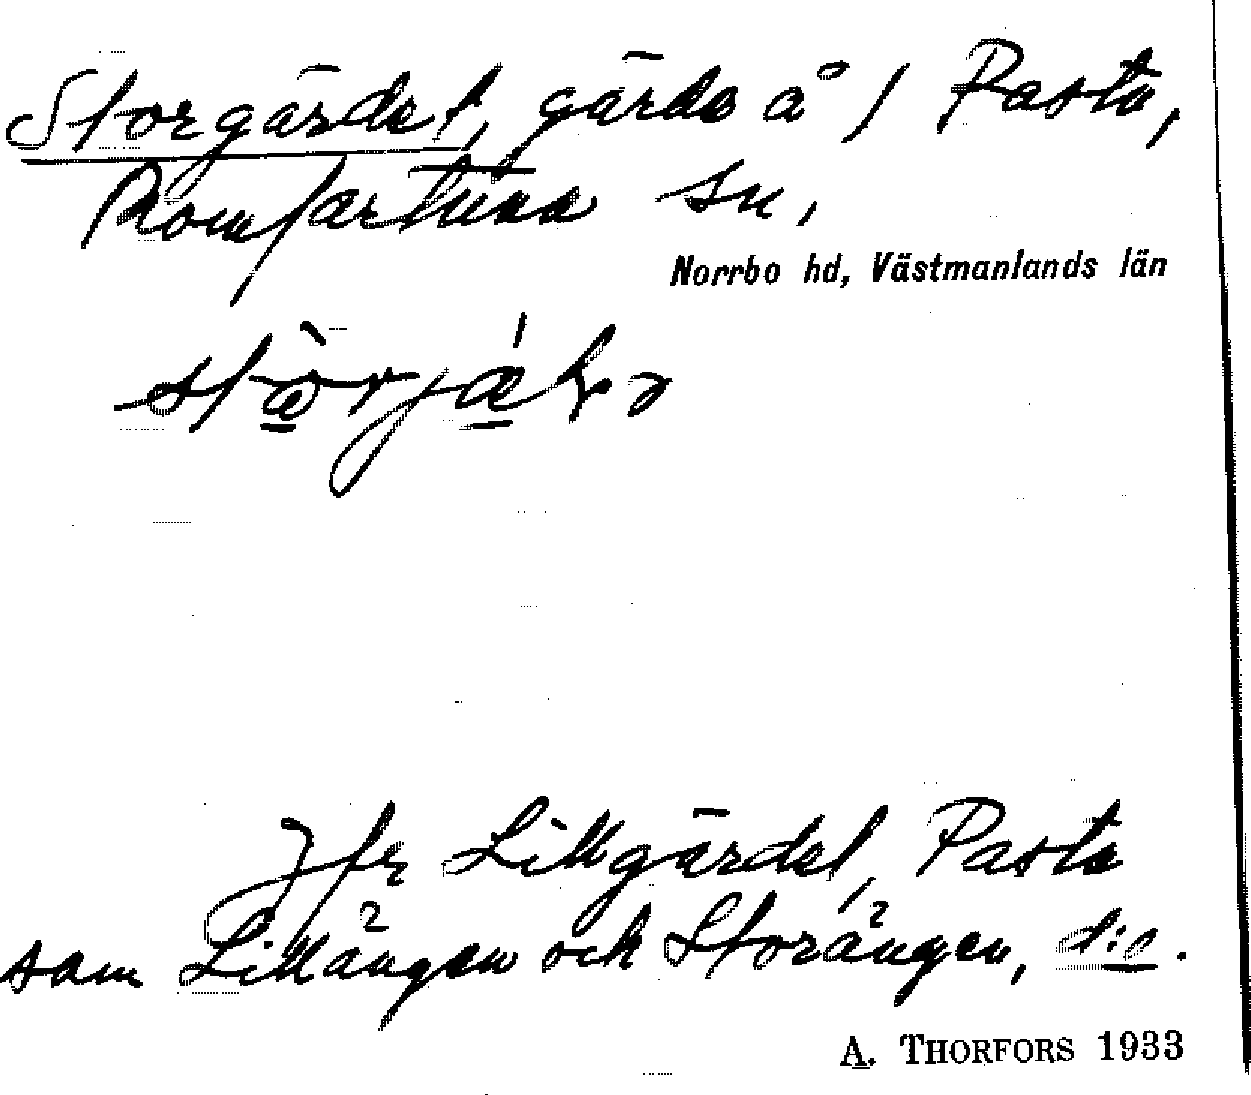 Storgärdet, gärde å / Pasta,
Romfartuna sn,
Norrbo hd, Västmanlands län
Jfr Lillgärdet, Pasta
som Lillängen och Storängen, d:o.
A. THORFORS 1933